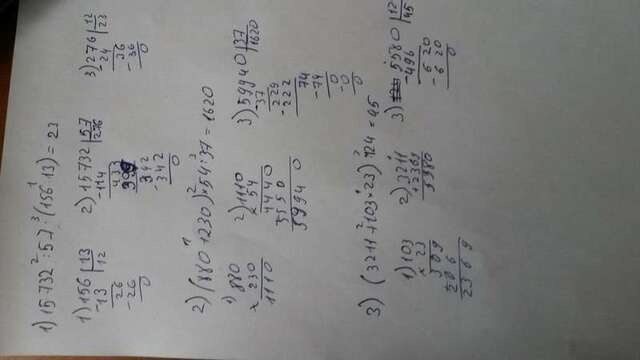 1) 15732 : 57 : (156 : 13) = 23
1) 156 |13
-13 |12
26
-26
0
2) 15732 |57
-114 |276
433
399
342
-342
0
3) 276 |12
24 |23
36
-36
0
2) (880 + 230) · 54 : 37 = 1620
1) 880
× 230
1110
2) 1110
× 54
4440
5550
59940
3) 59940 |37
-37 |1620
229
-222
74
-74
0
-0
0
3) (3211 + 103 · 23) : 124 = 45
1) 103
× 23
309
206
2369
2) 3211
+ 2369
5580
3) 5580 |12
-496 |45
620
-620
0